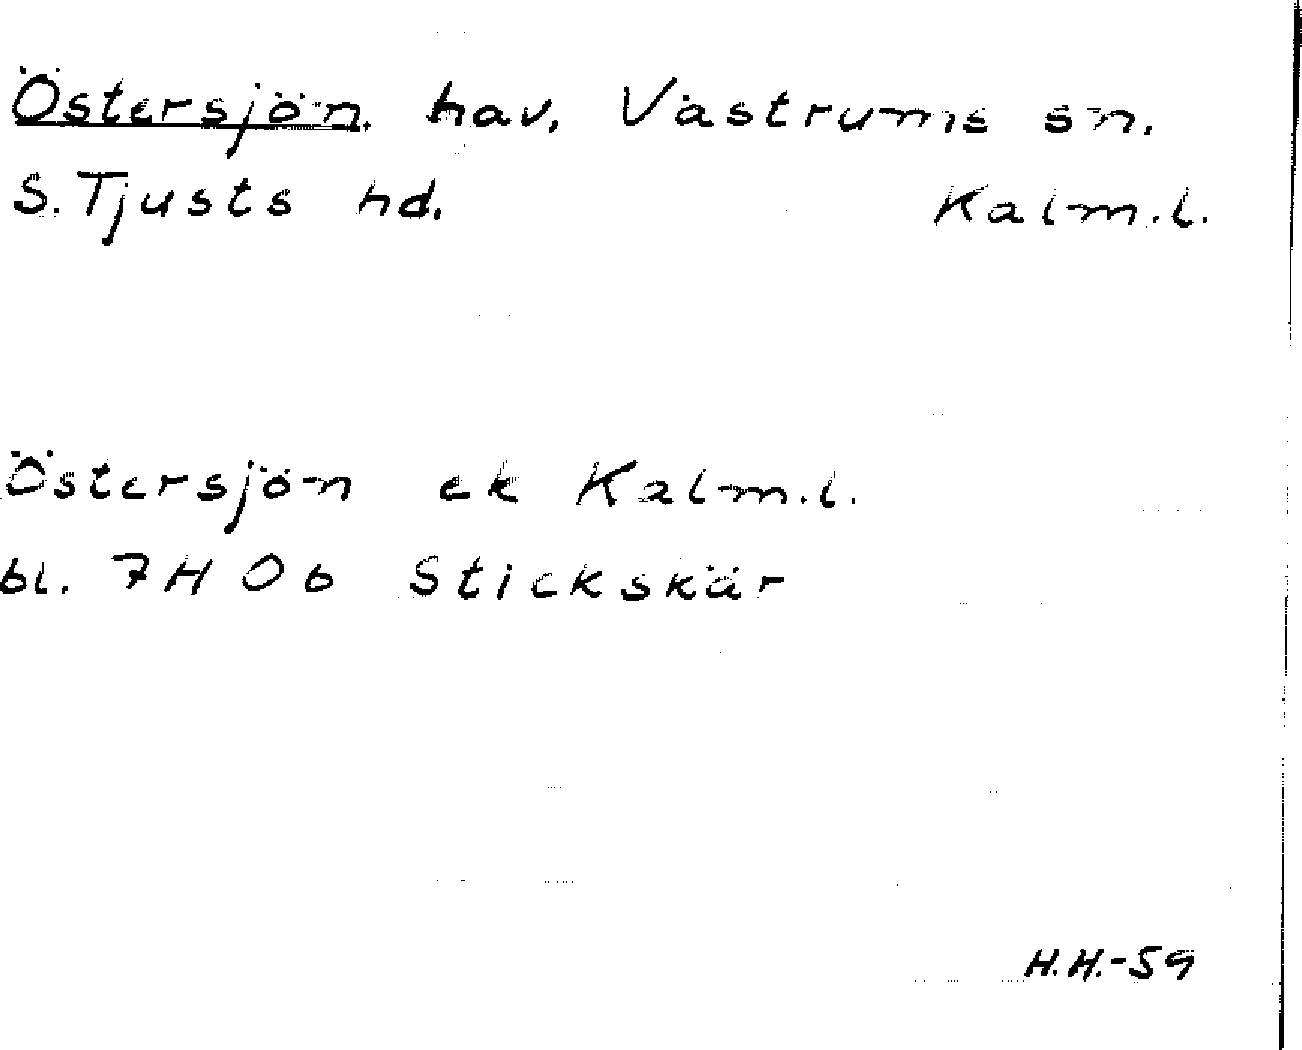 Östersjön, hav, Västrums sn.
S. Tjusts hd. Kalm.l.
Östersjön ek Kalm.l.
bl. 7H 0b Stickskär
H.H.-59